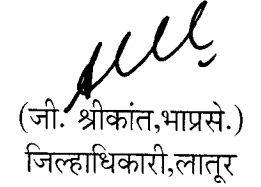 (जी. श्रीकांत,भाप्रसे.)
जिल्हाधिकारी,लातूर